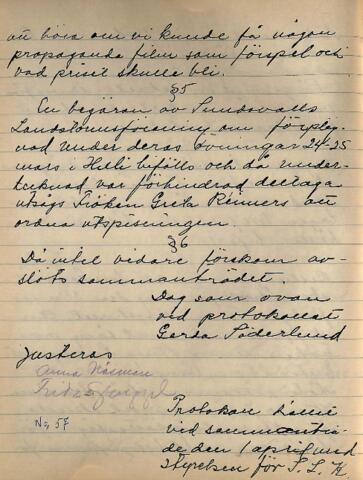 att höra om vi kunde få någon
propaganda film som förspel och
vad priset skulle bli.
§5
En begäran av Sundsvalls
Landstormsförening om förpläg-
nad under deras övningar 24-25
mars i Helli bifölls och då under-
tecknad var förhindrad deltaga
utsågs Fröken Greta Renners att
ordna utspisningen.
§6
Då intet vidare förekom av-
slöts sammanträdet.
Dag som ovan
vid protokollet
Gerda Söderlund
Justeras
Anna Näsman
No, 57
Protokoll
vid
de den 1 april med
Styrelsen för S. L. K.